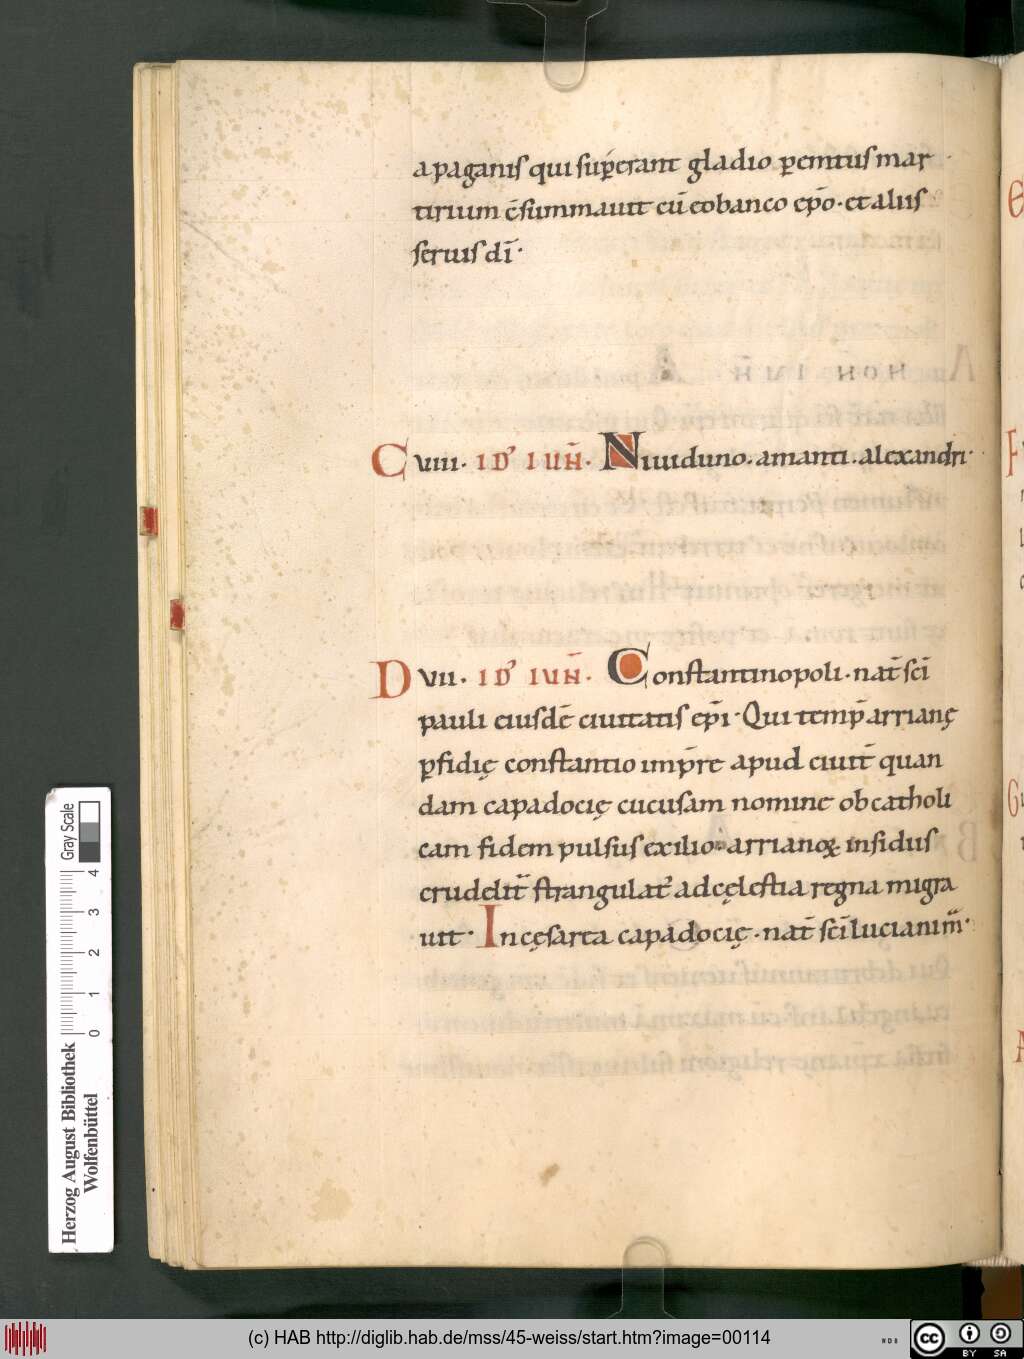 a paganis qui sup̄erant gladio ꝑemtus mar
tirium c̄summauit cū eobanco ep̄o · et aliis
seruis dī ·
C VIII · ID' IUN̄ · Niuiduno · amanti · alexandri ·
D VII · ID' IUN̄ · Constantinopoli · nat̄ sc̄i
pauli eiusdē ciuitatis ep̄i · Qui temp̄ arrianę
ꝑfidię constantio imp̄re apud ciuit̄ quan
dam capadocię cucusam nomine ob catholi
cam fidem pulsus exilio · arrianoꝝ insidiis
crudelit̄ strangulat' ad cęlestia regna migra
uit · In cęsarea capadocię · nat̄ sc̄i luciani m̄ ·
Gray Scale
4
3
2
1
0
Herzog August Bibliothek
Wolfenbüttel
(c) HAB http://diglib.hab.de/mss/45-weiss/start.htm?image=00114
WDB
cc
BY SA